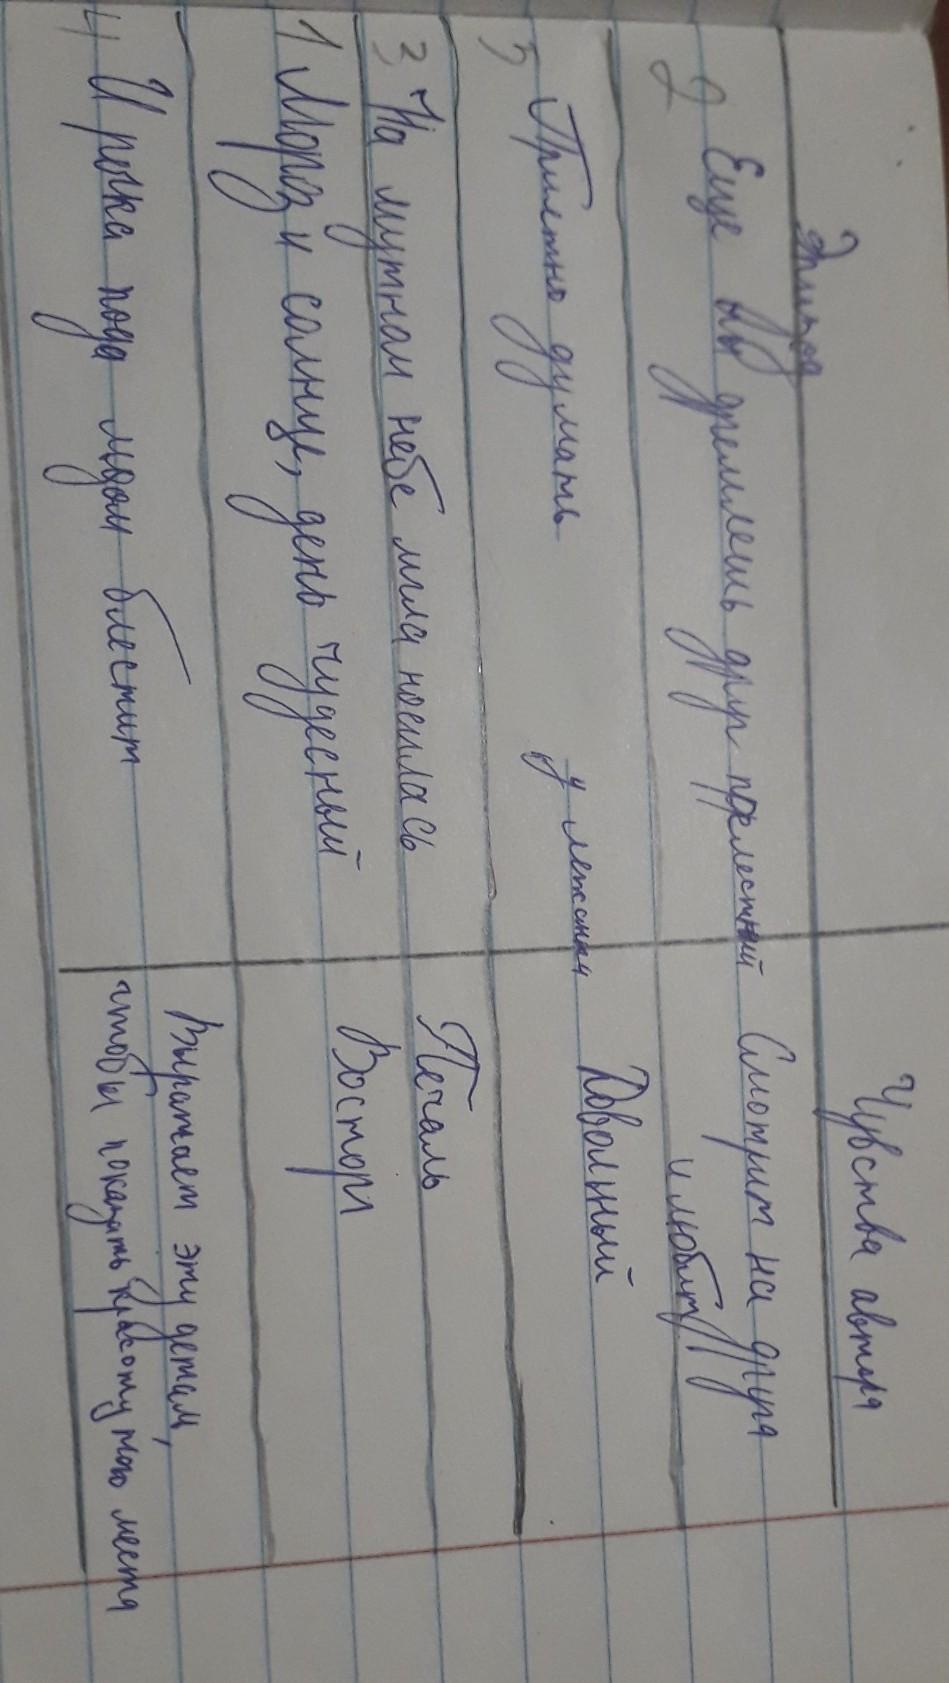 Эпизод Чувства автора
2 Еще ты дремлешь друг прелестный Смотрит на друга
и любит
5 Приятно думать у лежанки Довольный
3, На мутном небе мгла носилась Печаль
1 Мороз и солнце, день чудесный Восторг
Выражает эту детал,
4 И речка подо льдом блестит чтобы показать красоту того места